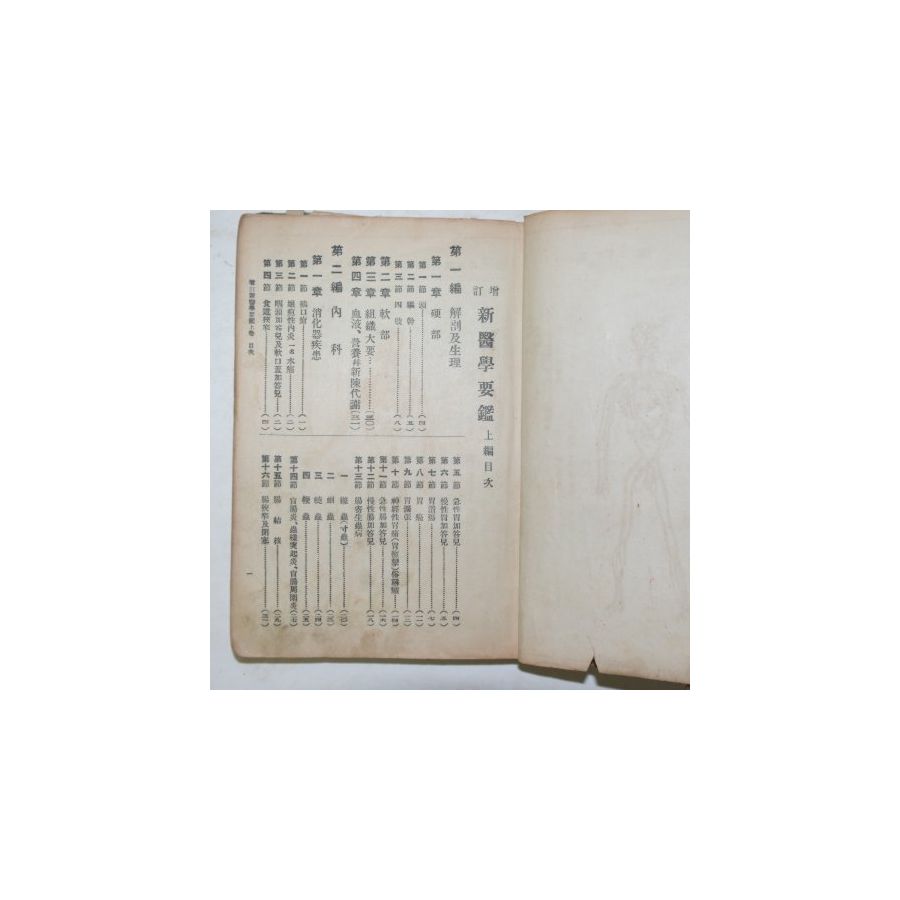 增訂 新醫學要鑑 上編目次
第一編 解剖及生理
第一章 硬部
第一節 頭……(四)
第二節 軀幹……(五)
第三節 四肢……(八)
第二章 軟部
第三章 組織大要……(三〇)
第四章 血液、營養並新陳代謝(三一)
第二編 內科
第一章 消化器疾患
第一節 鵝口瘡……(一)
第二節
第三節 咽頭加答兒及軟口蓋加答兒……(二)
第四節 食道狹窄……(四)
第五節 急性胃加答兒……(四)
第六節 慢性胃加答兒……(五)
第七節 胃潰瘍……(七)
第八節 胃癌……(一一)
第九節 胃擴張
第十節 神經性胃痛(胃痙攣)
第十一節 急性腸加答兒
第十二節 慢性腸加答兒……(一八)
第十三節 腸寄生蟲病
一 絛蟲(寸蟲)
二 蛔蟲
三 蟯蟲
四
第十四節 盲腸炎、蟲樣突起炎、盲腸周圍炎
第十五節 腸結核
第十六節 腸狹窄及閉塞
增訂新醫學要鑑上卷 目次
一